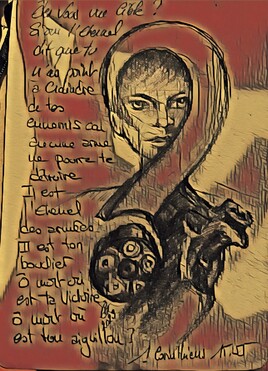 une cible ?
l'Eternel
dit que tu
n'as point
à craindre
de tes
ennemis car
aucune arme
ne pourra te
détruire
Il est
l'Eternel
des armées
Il est ton
bouclier
ô mort où
est ta victoire
ô mort où
est ton aiguillon ?
1 Corinthiens